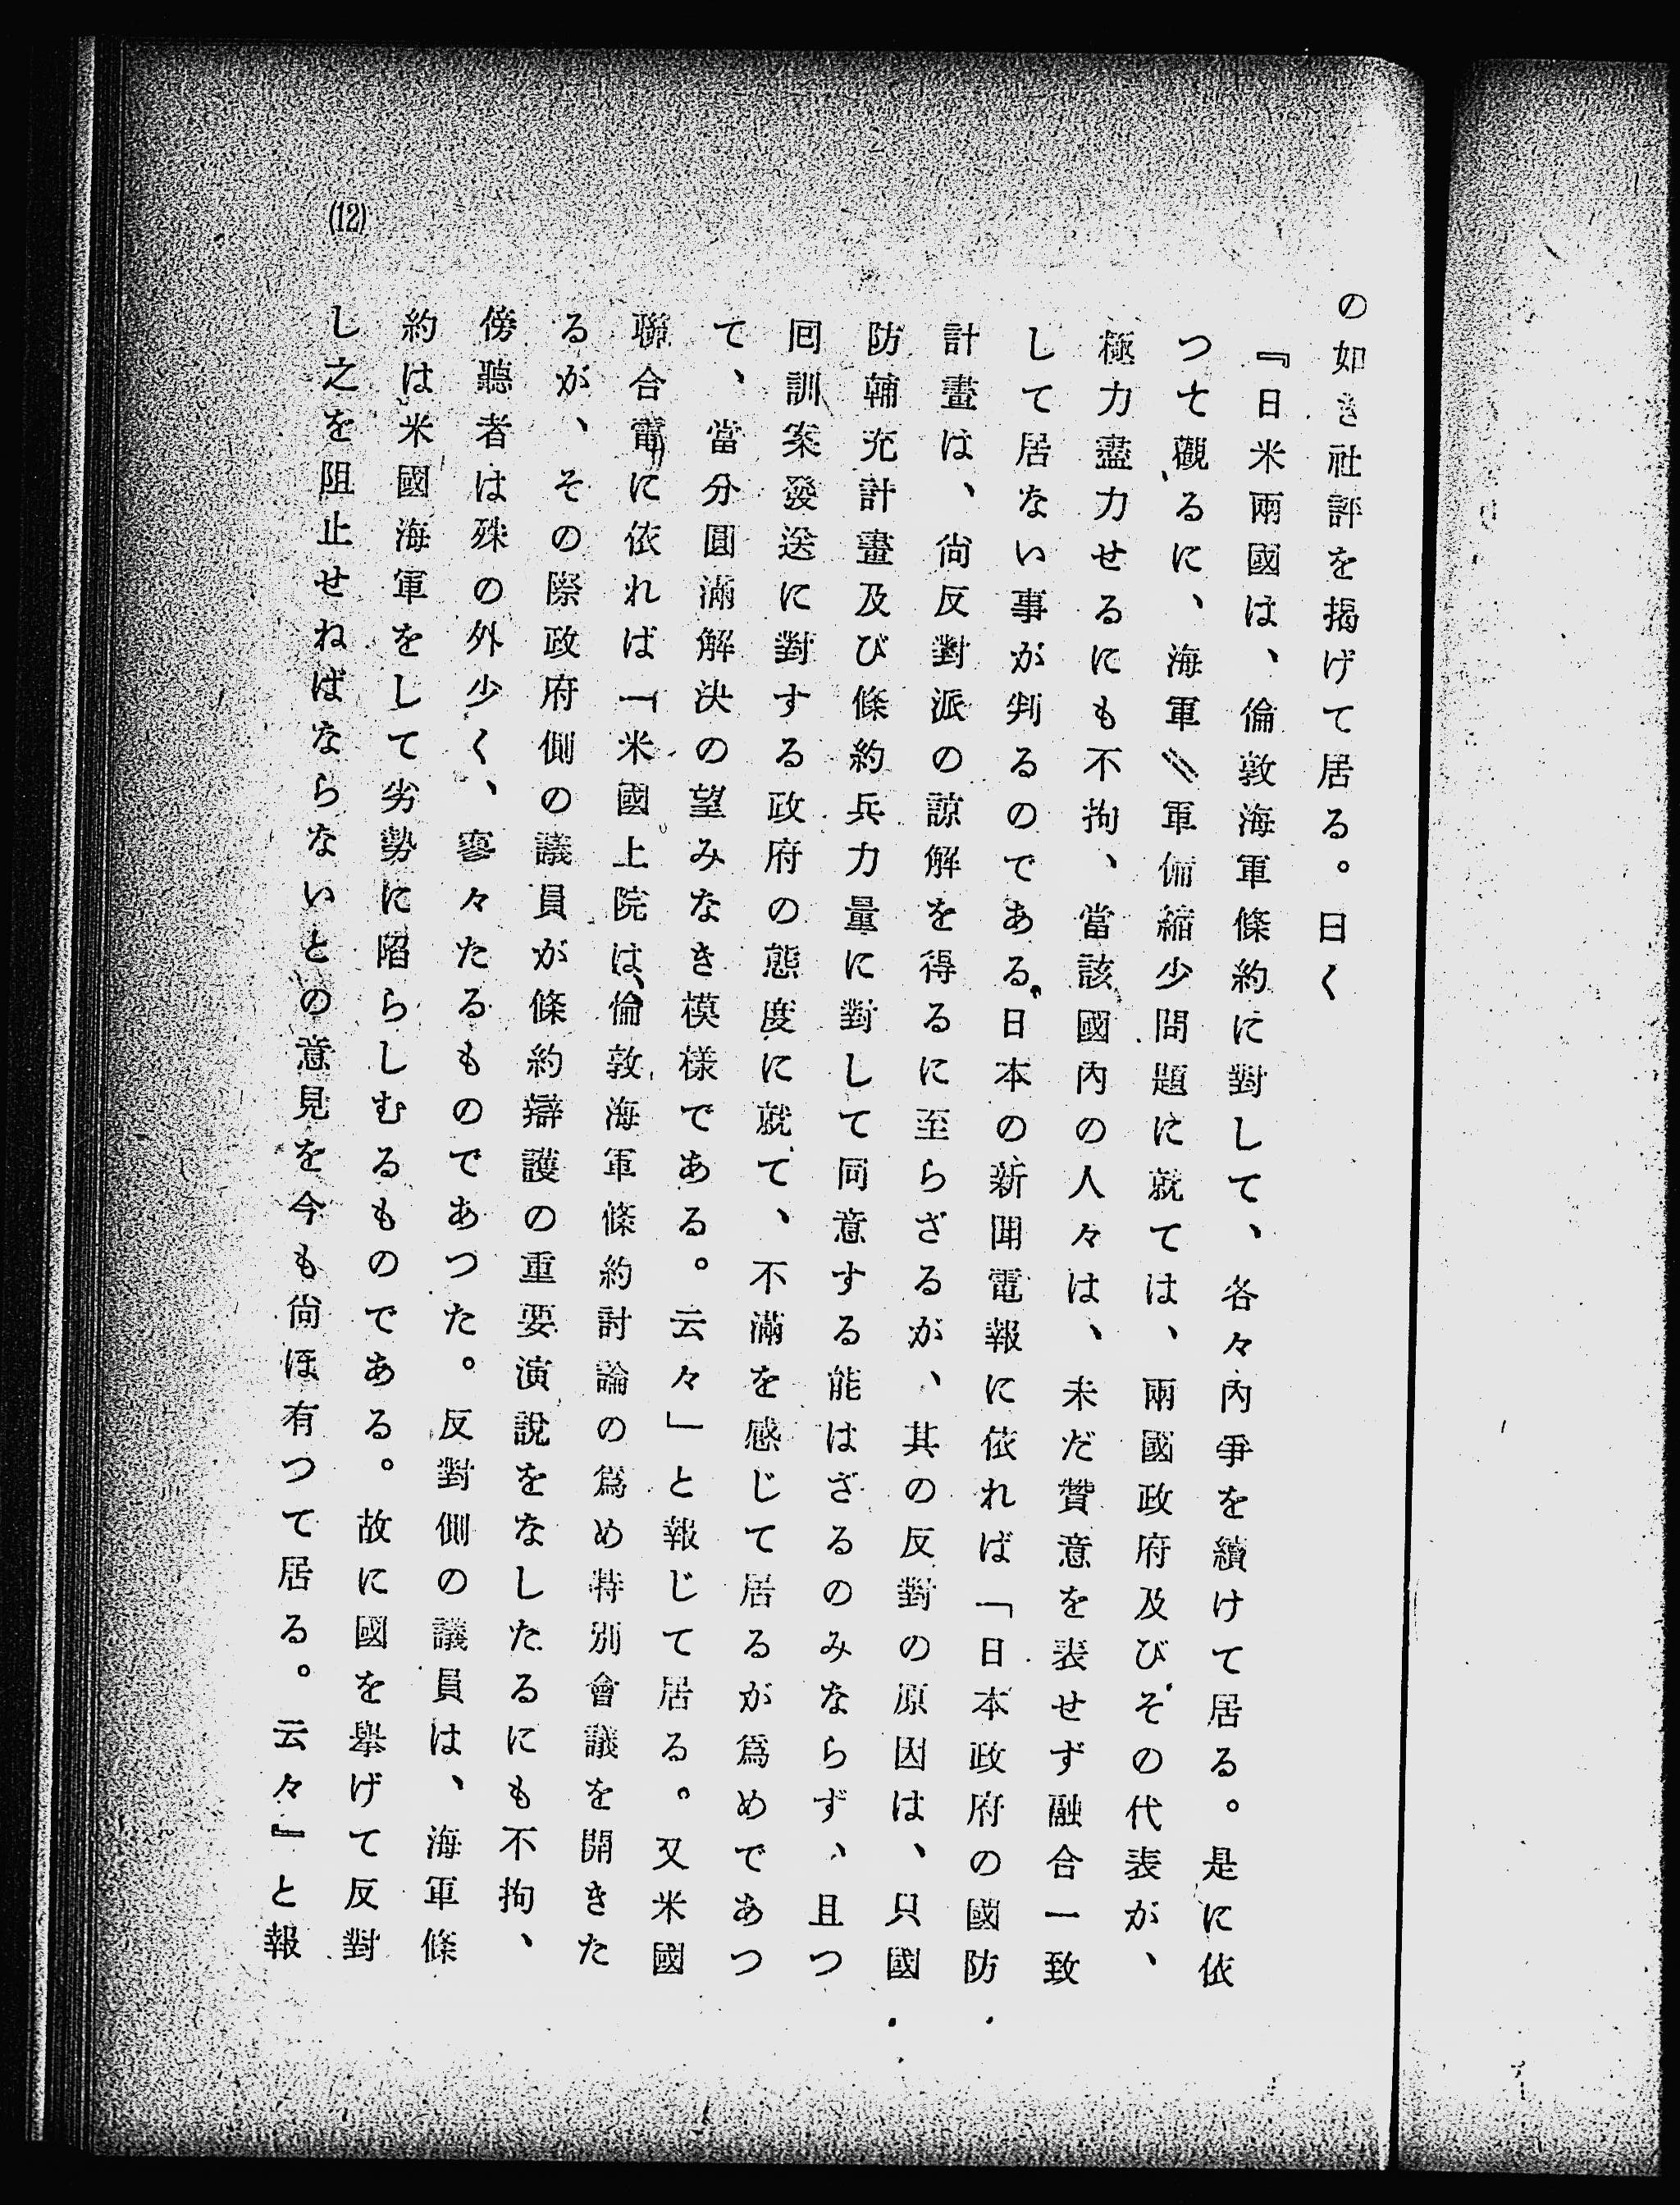 の如き社評を揭げて居る。曰く
『日米兩國は、倫敦海軍條約に對して、各々內爭を續けて居る。是に依
つて觀るに、海軍〃軍備縮少問題に就ては、兩國政府及びその代表が、
極力盡力せるにも不拘、當該國內の人々は、未だ贊意を表せず融合一致
して居ない事が判るのである。日本の新聞電報に依れば「日本政府の國防
計畫は、尙反對派の諒解を得るに至らざるが、其の反對の原因は、只國
防補充計畫及び條約兵力量に對して同意する能はざるのみならず、且つ
囘訓案發送に對する政府の態度に就て、不滿を感じて居るが爲めであつ
て、當分圓滿解決の望みなき模樣である。云々」と報じて居る。又米國
聯合電に依れば「米國上院は、倫敦海軍條約討論の爲め特別會議を開きた
るが、その際政府側の議員が條約辯護の重要演說をなしたるにも不拘、
傍聽者は殊の外少く、寥々たるものであつた。反對側の議員は、海軍條
約は米國海軍をして劣勢に陷らしむるものである。故に國を擧げて反對
し之を阻止せねばならないとの意見を今も尙ほ有つて居る。云々』と報
(12)